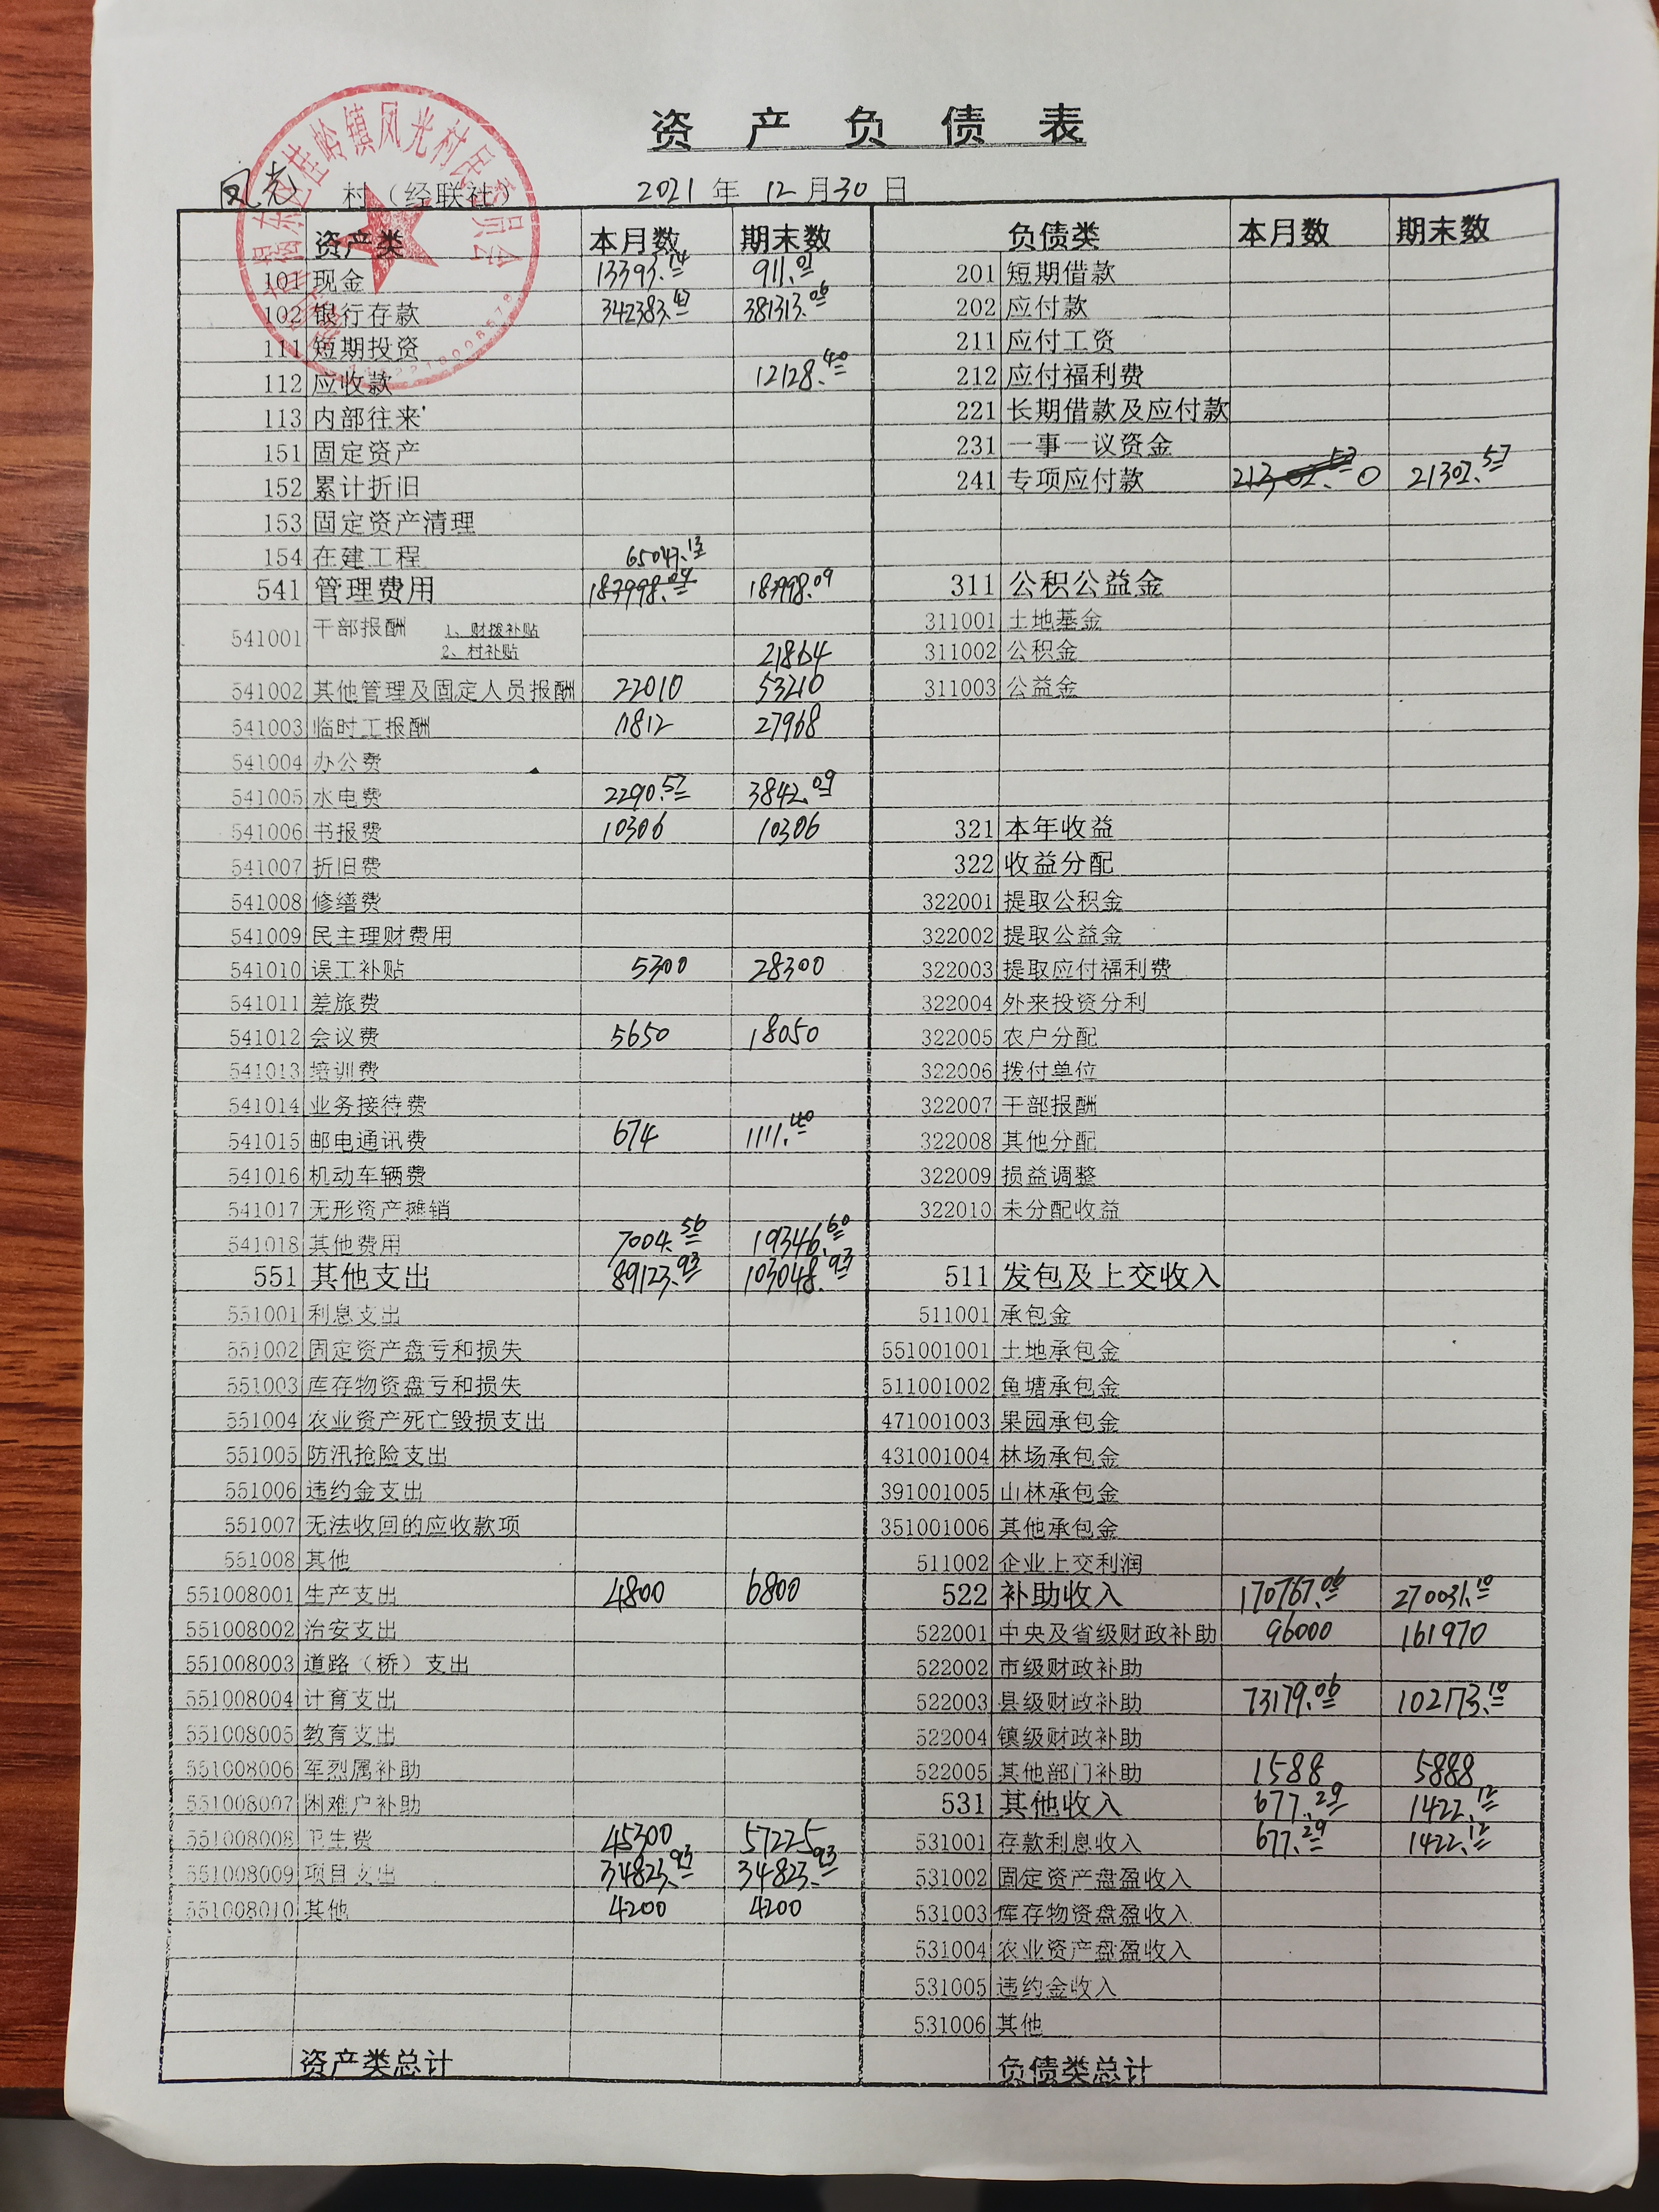 资产负债表
凤光 村（经联社） 2021 年 12 月 30 日
资产类 本月数 期末数 负债类 本月数 期末数
101 现金 13393.14 911.01 201 短期借款
102 银行存款 381313.06 202 应付款
111 短期投资 211 应付工资
112 应收款 12128.40 212 应付福利费
113 内部往来 221 长期借款及应付款
151 固定资产 231 一事一议资金
152 累计折旧 241 专项应付款 0 21302.57
153 固定资产清理
154 在建工程 65047.13
541 管理费用 311 公积公益金
541001 干部报酬 1、财拨补贴 311001 土地基金
2、村补贴 21864 311002 公积金
541002 其他管理及固定人员报酬 22010 53210 311003 公益金
541003 临时工报酬 11812 27968
541004 办公费
541005 水电费 2290.57 3842.09
541006 书报费 10306 10306 321 本年收益
541007 折旧费 322 收益分配
541008 修缮费 322001 提取公积金
541009 民主理财费用 322002 提取公益金
541010 误工补贴 5300 28300 322003 提取应付福利费
541011 差旅费 322004 外来投资分利
541012 会议费 5650 18050 322005 农户分配
541013 培训费 322006 拨付单位
541014 业务接待费 322007 干部报酬
541015 邮电通讯费 674 1111.40 322008 其他分配
541016 机动车辆费 322009 损益调整
541017 无形资产摊销 322010 未分配收益
541018 其他费用 7004.56 19346.60
551 其他支出 89123.93 103048.93 511 发包及上交收入
551001 利息支出 511001 承包金
551002 固定资产盘亏和损失 551001001 土地承包金
551003 库存物资盘亏和损失 511001002 鱼塘承包金
551004 农业资产死亡毁损支出 471001003 果园承包金
551005 防汛抢险支出 431001004 林场承包金
551006 违约金支出 391001005 山林承包金
551007 无法收回的应收款项 351001006 其他承包金
551008 其他 511002 企业上交利润
551008001 生产支出 4800 6800 522 补助收入 170767.06 270031.10
551008002 治安支出 522001 中央及省级财政补助 96000 161970
551008003 道路（桥）支出 522002 市级财政补助
551008004 计育支出 522003 县级财政补助 73179.06 102173.10
551008005 教育支出 522004 镇级财政补助
551008006 军烈属补助 522005 其他部门补助 1588 5888
551008007 困难户补助 531 其他收入 677.29 1422.12
551008008 卫生费 45300 57225 531001 存款利息收入 677.29 1422.12
551008009 项目支出 34823.93 34823.93 531002 固定资产盘盈收入
551008010 其他 4200 4200 531003 库存物资盘盈收入
531004 农业资产盘盈收入
531005 违约金收入
531006 其他
资产类总计 负债类总计